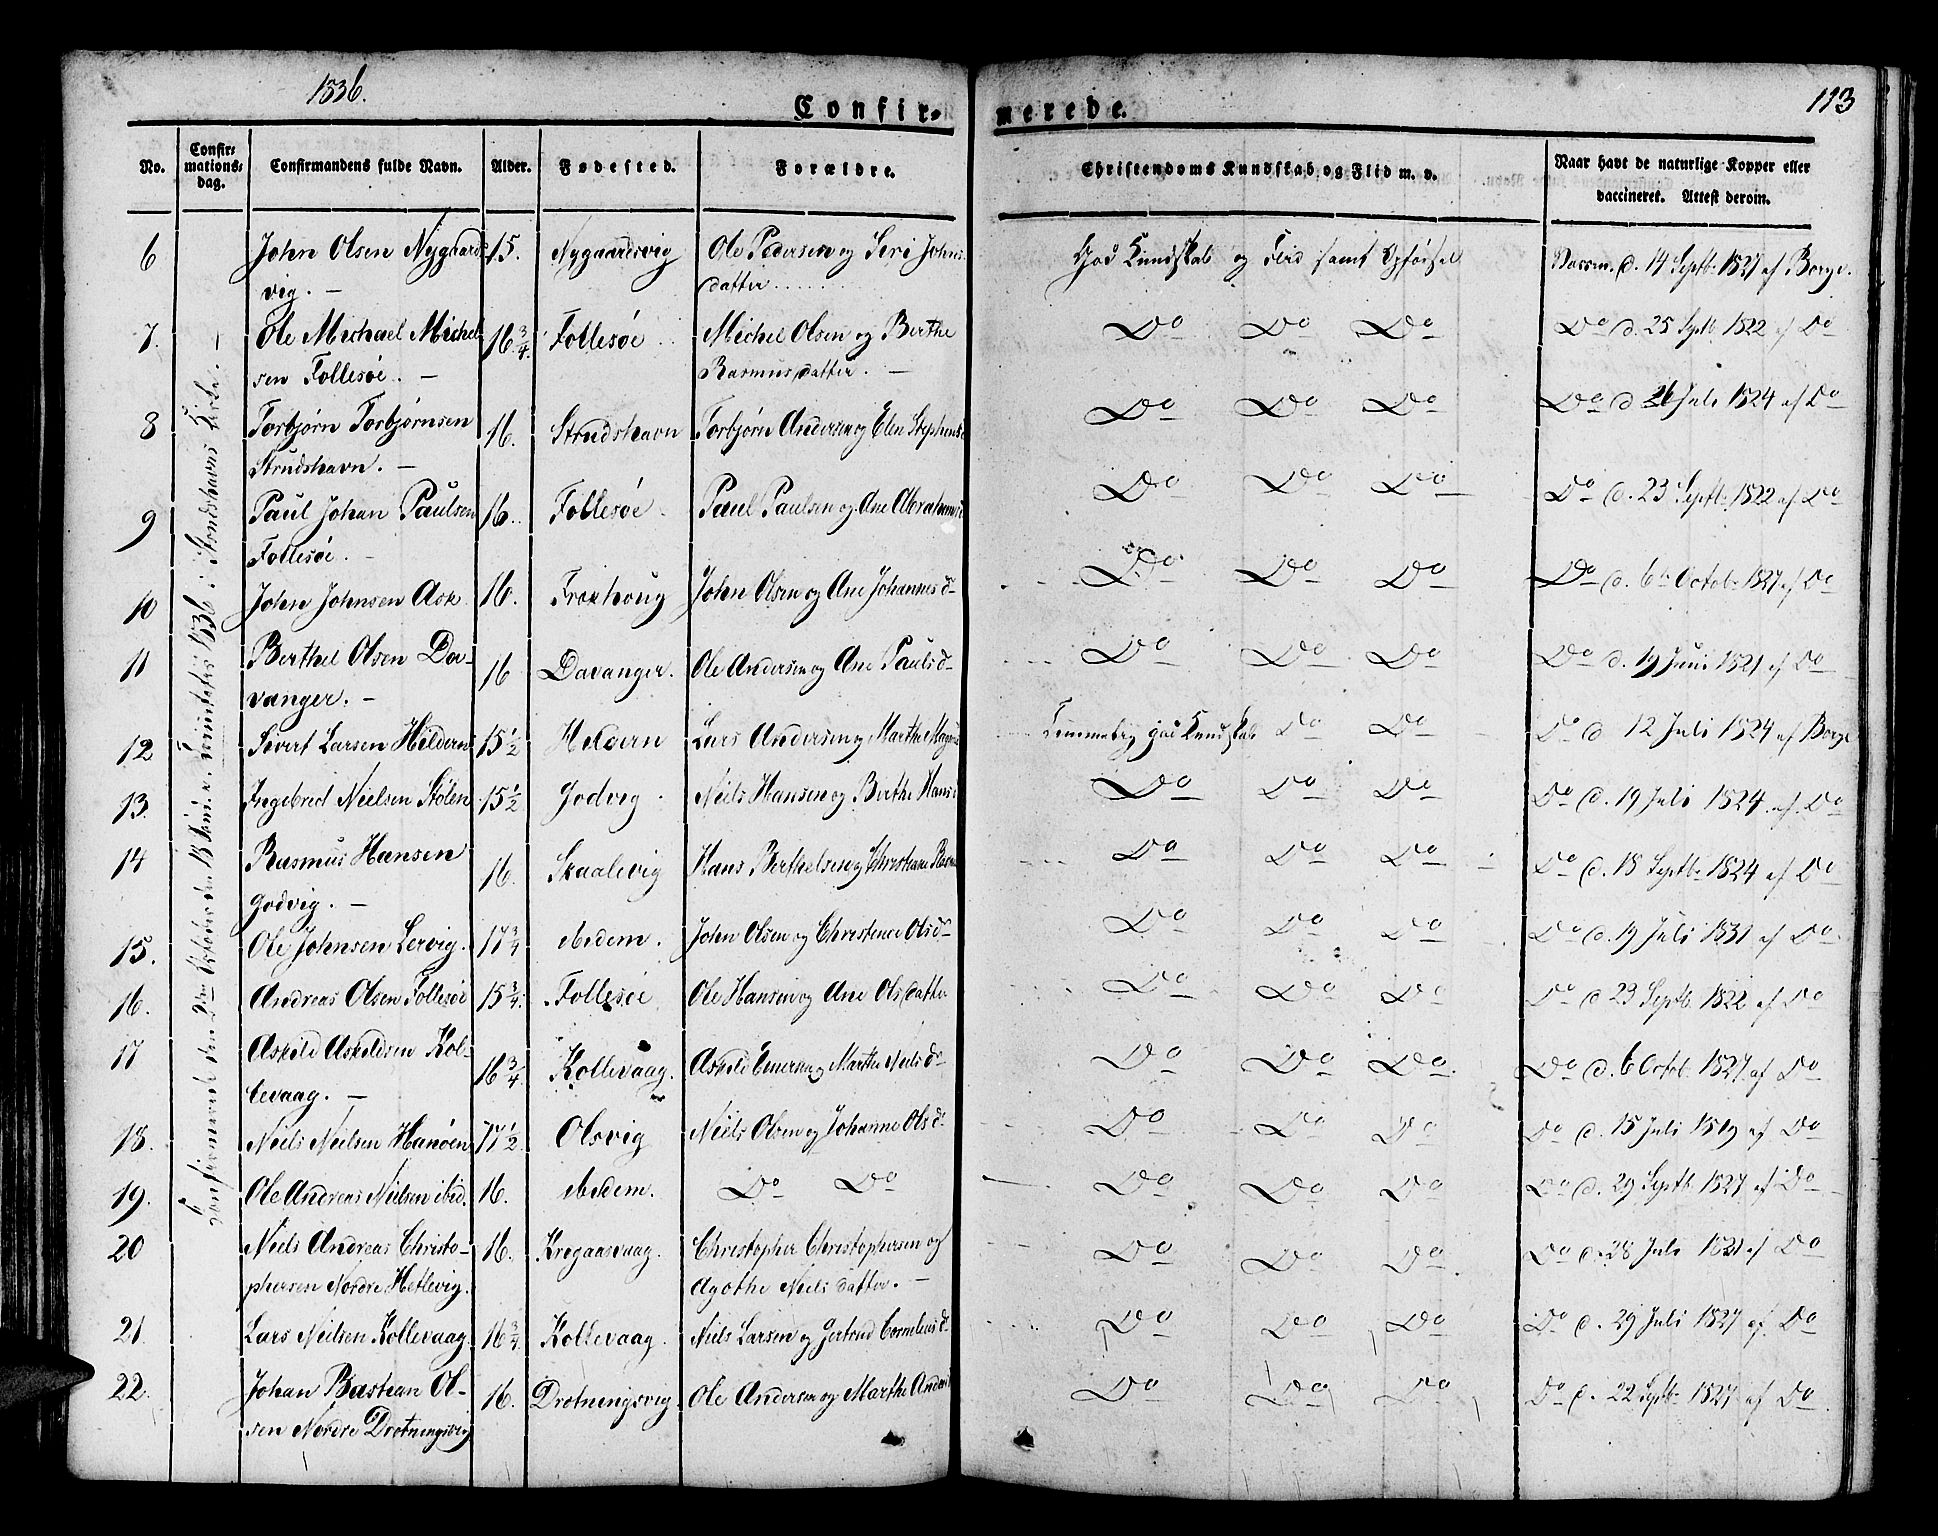 1836.
113
Confir-
merede.
No.
Confir-
mations-
dag.
Confirmandens fulde Navn.
Alder.
Fødested.
Forældre.
Christendoms Kundskab og Flid m. v.
Naar havt de naturlige Kopper eller
vaccineret. Attest derom.
Confirmerede den 2den October den 18 Sønd. e. Trinitatis 1836 i Strudshavns Kirke.
6 John Olsen Nygaards- 15. Nygaardsvig Ole Pedersen og Siri Johns God Kundskab og Flid samt Opførsel d. 14 Septb. 1827 af Borge.
vig. — datter
7. Ole Michael Michel- 16 3/4 Follesöe Michel Olsen og Berthe Do Do Do Do d. 25 Septb. 1822 af Do
sen Follesöe. — Rasmusdatter. —
8 Torbjørn Torbjørnsen 16. Strudshavn Torbjørn Andersen og Elen Stephensd Do Do Do Do d 26 Juli 1824 af Do
Strudshavn. —
9 Paul Johan Paulsen 16. Follesöe Paul Paulsen og Ane Abrahamsd Do Do Do Do d. 23 Septb. 1822 af Do
Follesöe. —
10 John Johnsen Ask 16. Froxhoug John Olsen og Ane Johannesd Do Do Do Do d. 6 Octob. 1827 af Do
11 Berthel Olsen Da- 16 Davanger. Ole Andersen og Ane Paulsd Do Do Do Do d. 19 Juni 1821 af Do
vanger. —
12 Sivert Larsen Hildern 15 1/2 Heldern Lars Andersen og Marthe Temmelig god Kundskab Do Do Do d 12 Juli 1824 af Borge
13. Ingebred Nielsen Stölen 15 1/2 Godvig Niels Hansen og Berthe Hansd Do Do Do Do d. 19 Juli 1824 af Do
14 Rasmus Hansen 16. Skaalevig Hans Berthelsen og Christiane Do Do Do Do d. 18 Septb. 1824 af Do
Godvig. —
15. Ole Johnsen Lervig. 17 3/4 ibidem. John Olsen og Christence Olsd Do Do Do Do d. 19 Juli 1831 af Do
16. Andreas Olsen Follesöe 15 3/4 Follesöe Ole Hansen og Ane Olsdatter Do Do Do Do d. 23 Septb. 1822 af Do
17 Askild Askildsen Kol- 16 3/4 Kollevaag. Askild og Marthe Nielsd Do Do Do Do d. 6 Octob. 1827 af Do
levaag. —
18. Niels Nielsen Hanöen 17 1/2 Olsvig Niels Olsen og Johanne Olsd Do Do Do Do d. 15 Juli 1819 af Do
19. Ole Andreas Nielsen ibid. 16. ibidem. Do Do Do Do Do Do d. 29 Septb. 1827 af Do
20 Niels Andreas Christo- 16. Krogaasvaag. Christopher Christophersen og Do Do Do Do d. 28 Juli 1821 af Do
phersen Nordre Hetlevig. Agothe Nielsdatter. —
21. Lars Nielsen Kollevaag 16 3/4 Kollevaag. Niels Larsen og Gertrud Corneliusd Do Do Do Do d. 29 Juli 1827 af Do
22. Johan Bastian Ol- 16. Drotningsvig Ole Andersen og Marthe Do Do Do Do d. 22 Septb. 1827 af Do
sen Nordre Drotningsvig